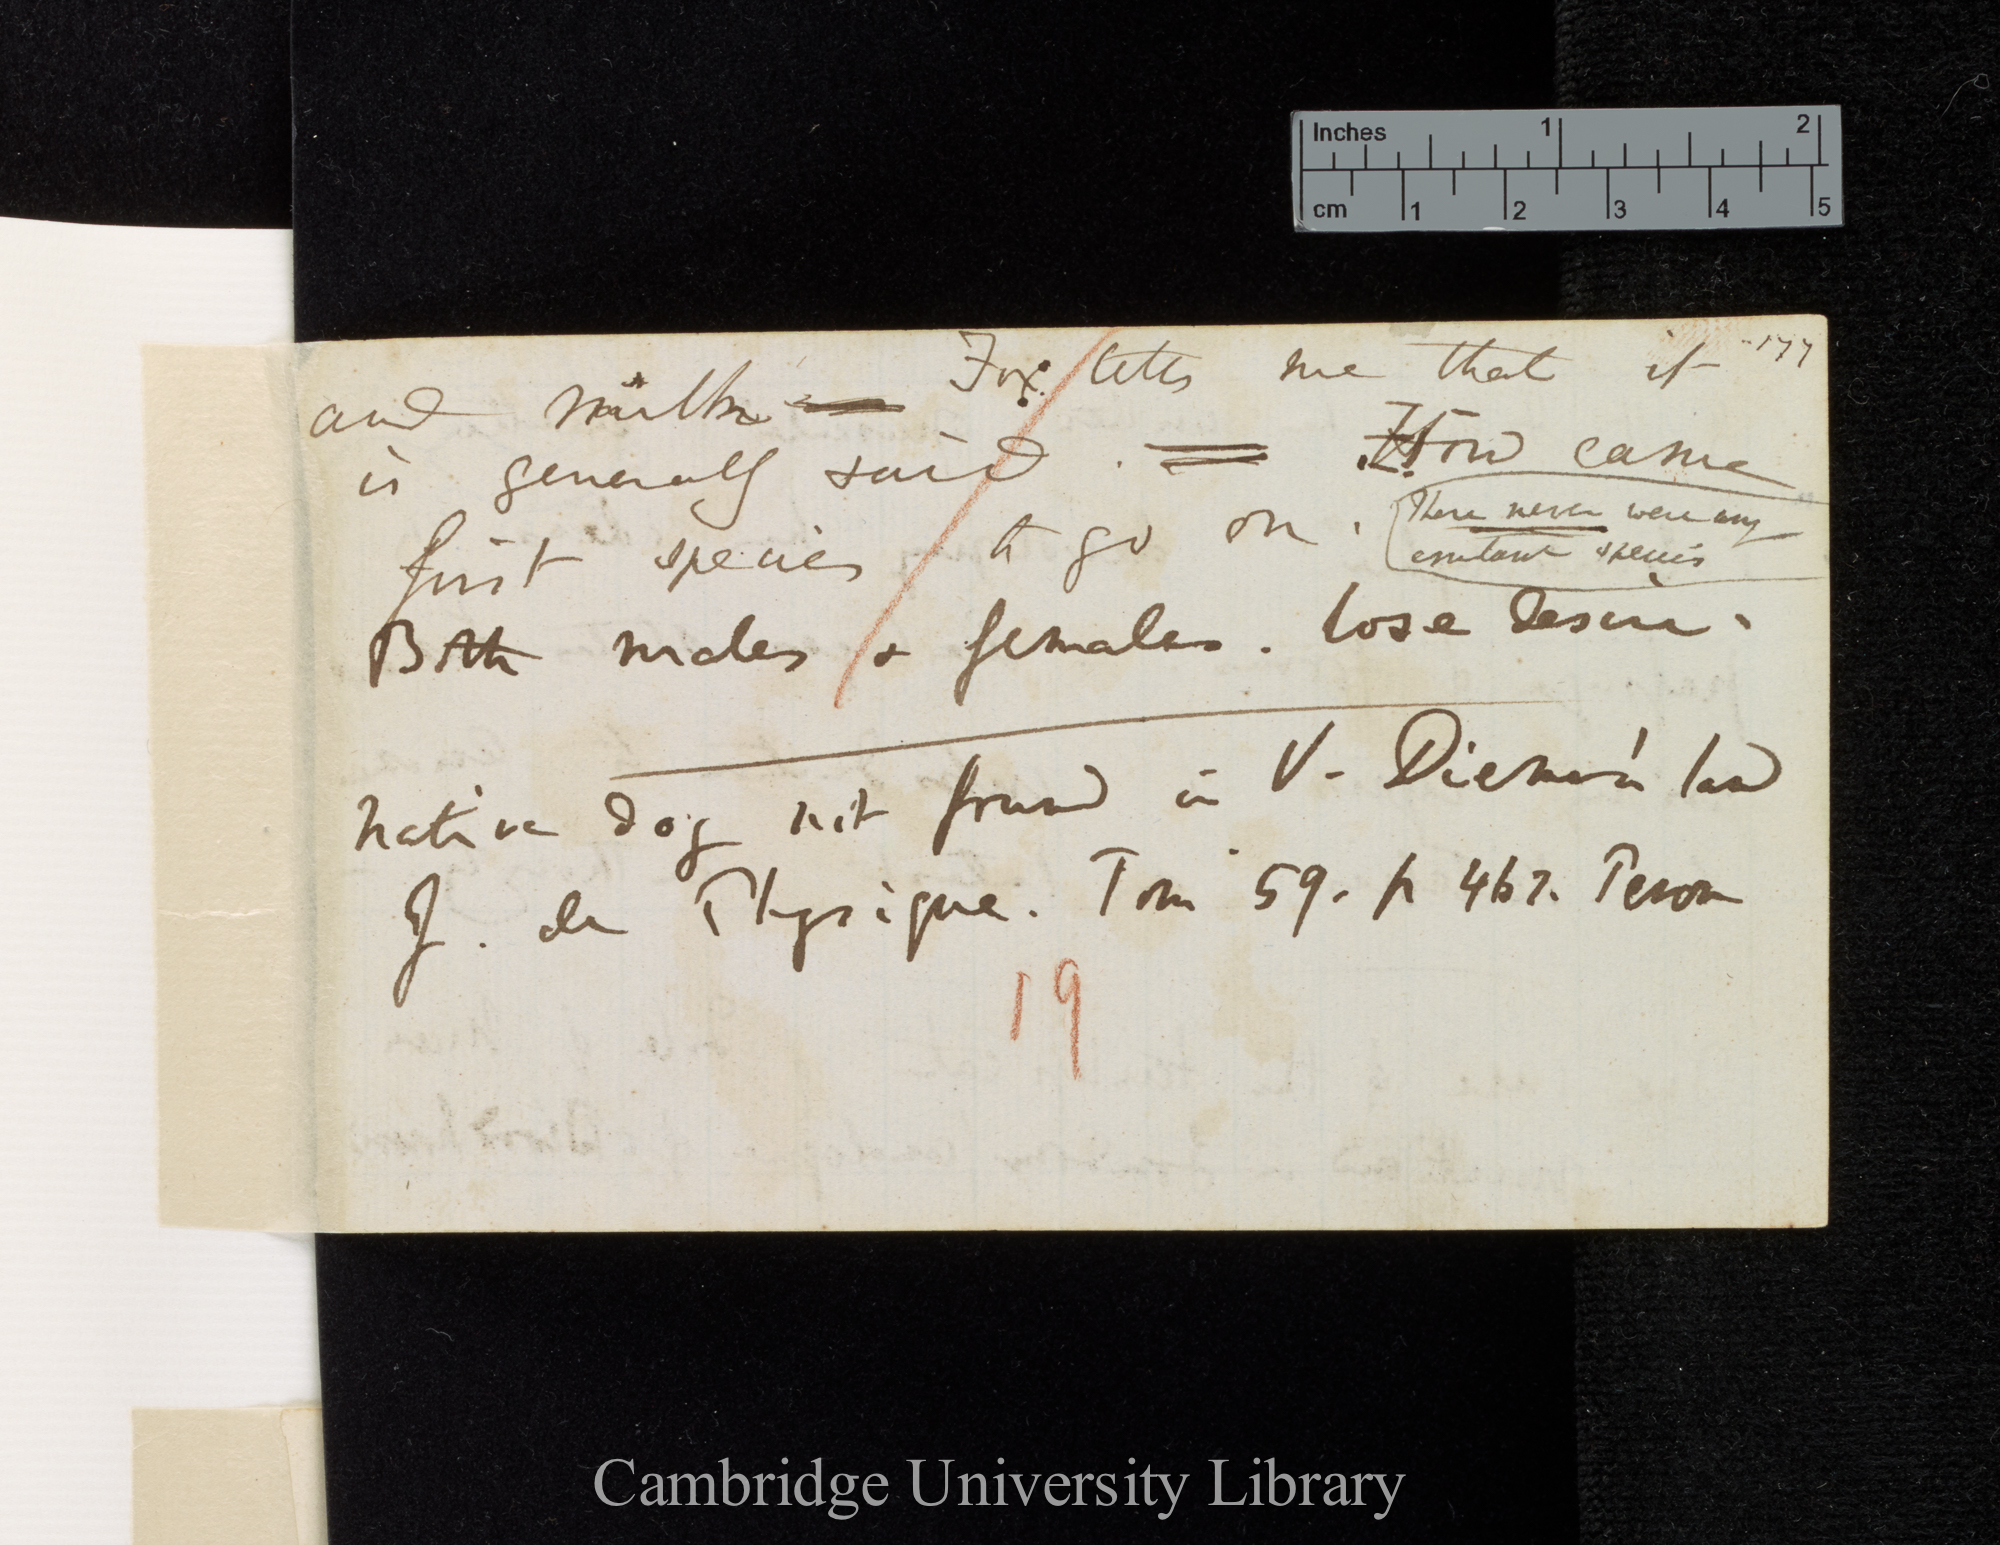 Inches 1 2
cm 1 2 3 4 5
177
and Fox tells me that it
is generally said. = How came
first species to go on.
There never were any
constant species
Both males & females. lose desire.
native dog not found in V. Diemen's land
J. de Physique. Tom 59. p 467. Peron
19
Cambridge University Library